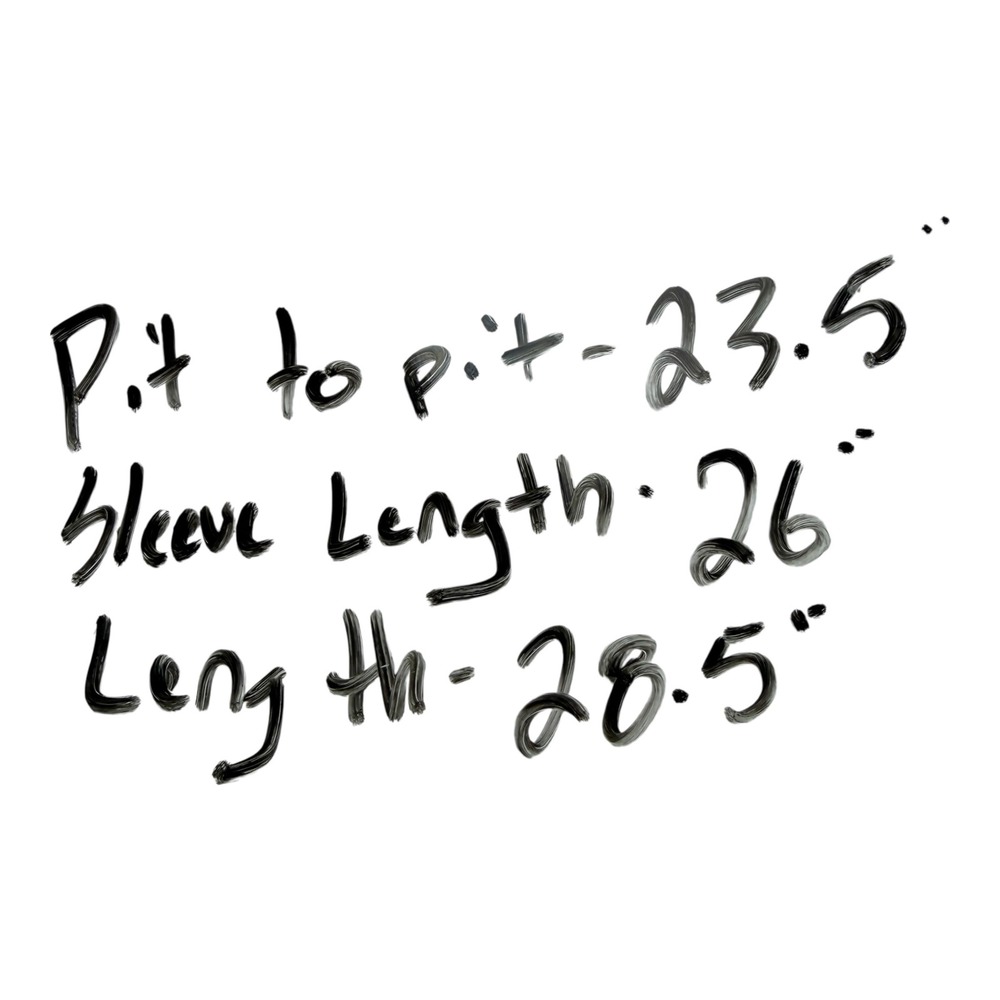 Pit to pit - 23.5"
Sleeve Length - 26"
Length - 28.5"